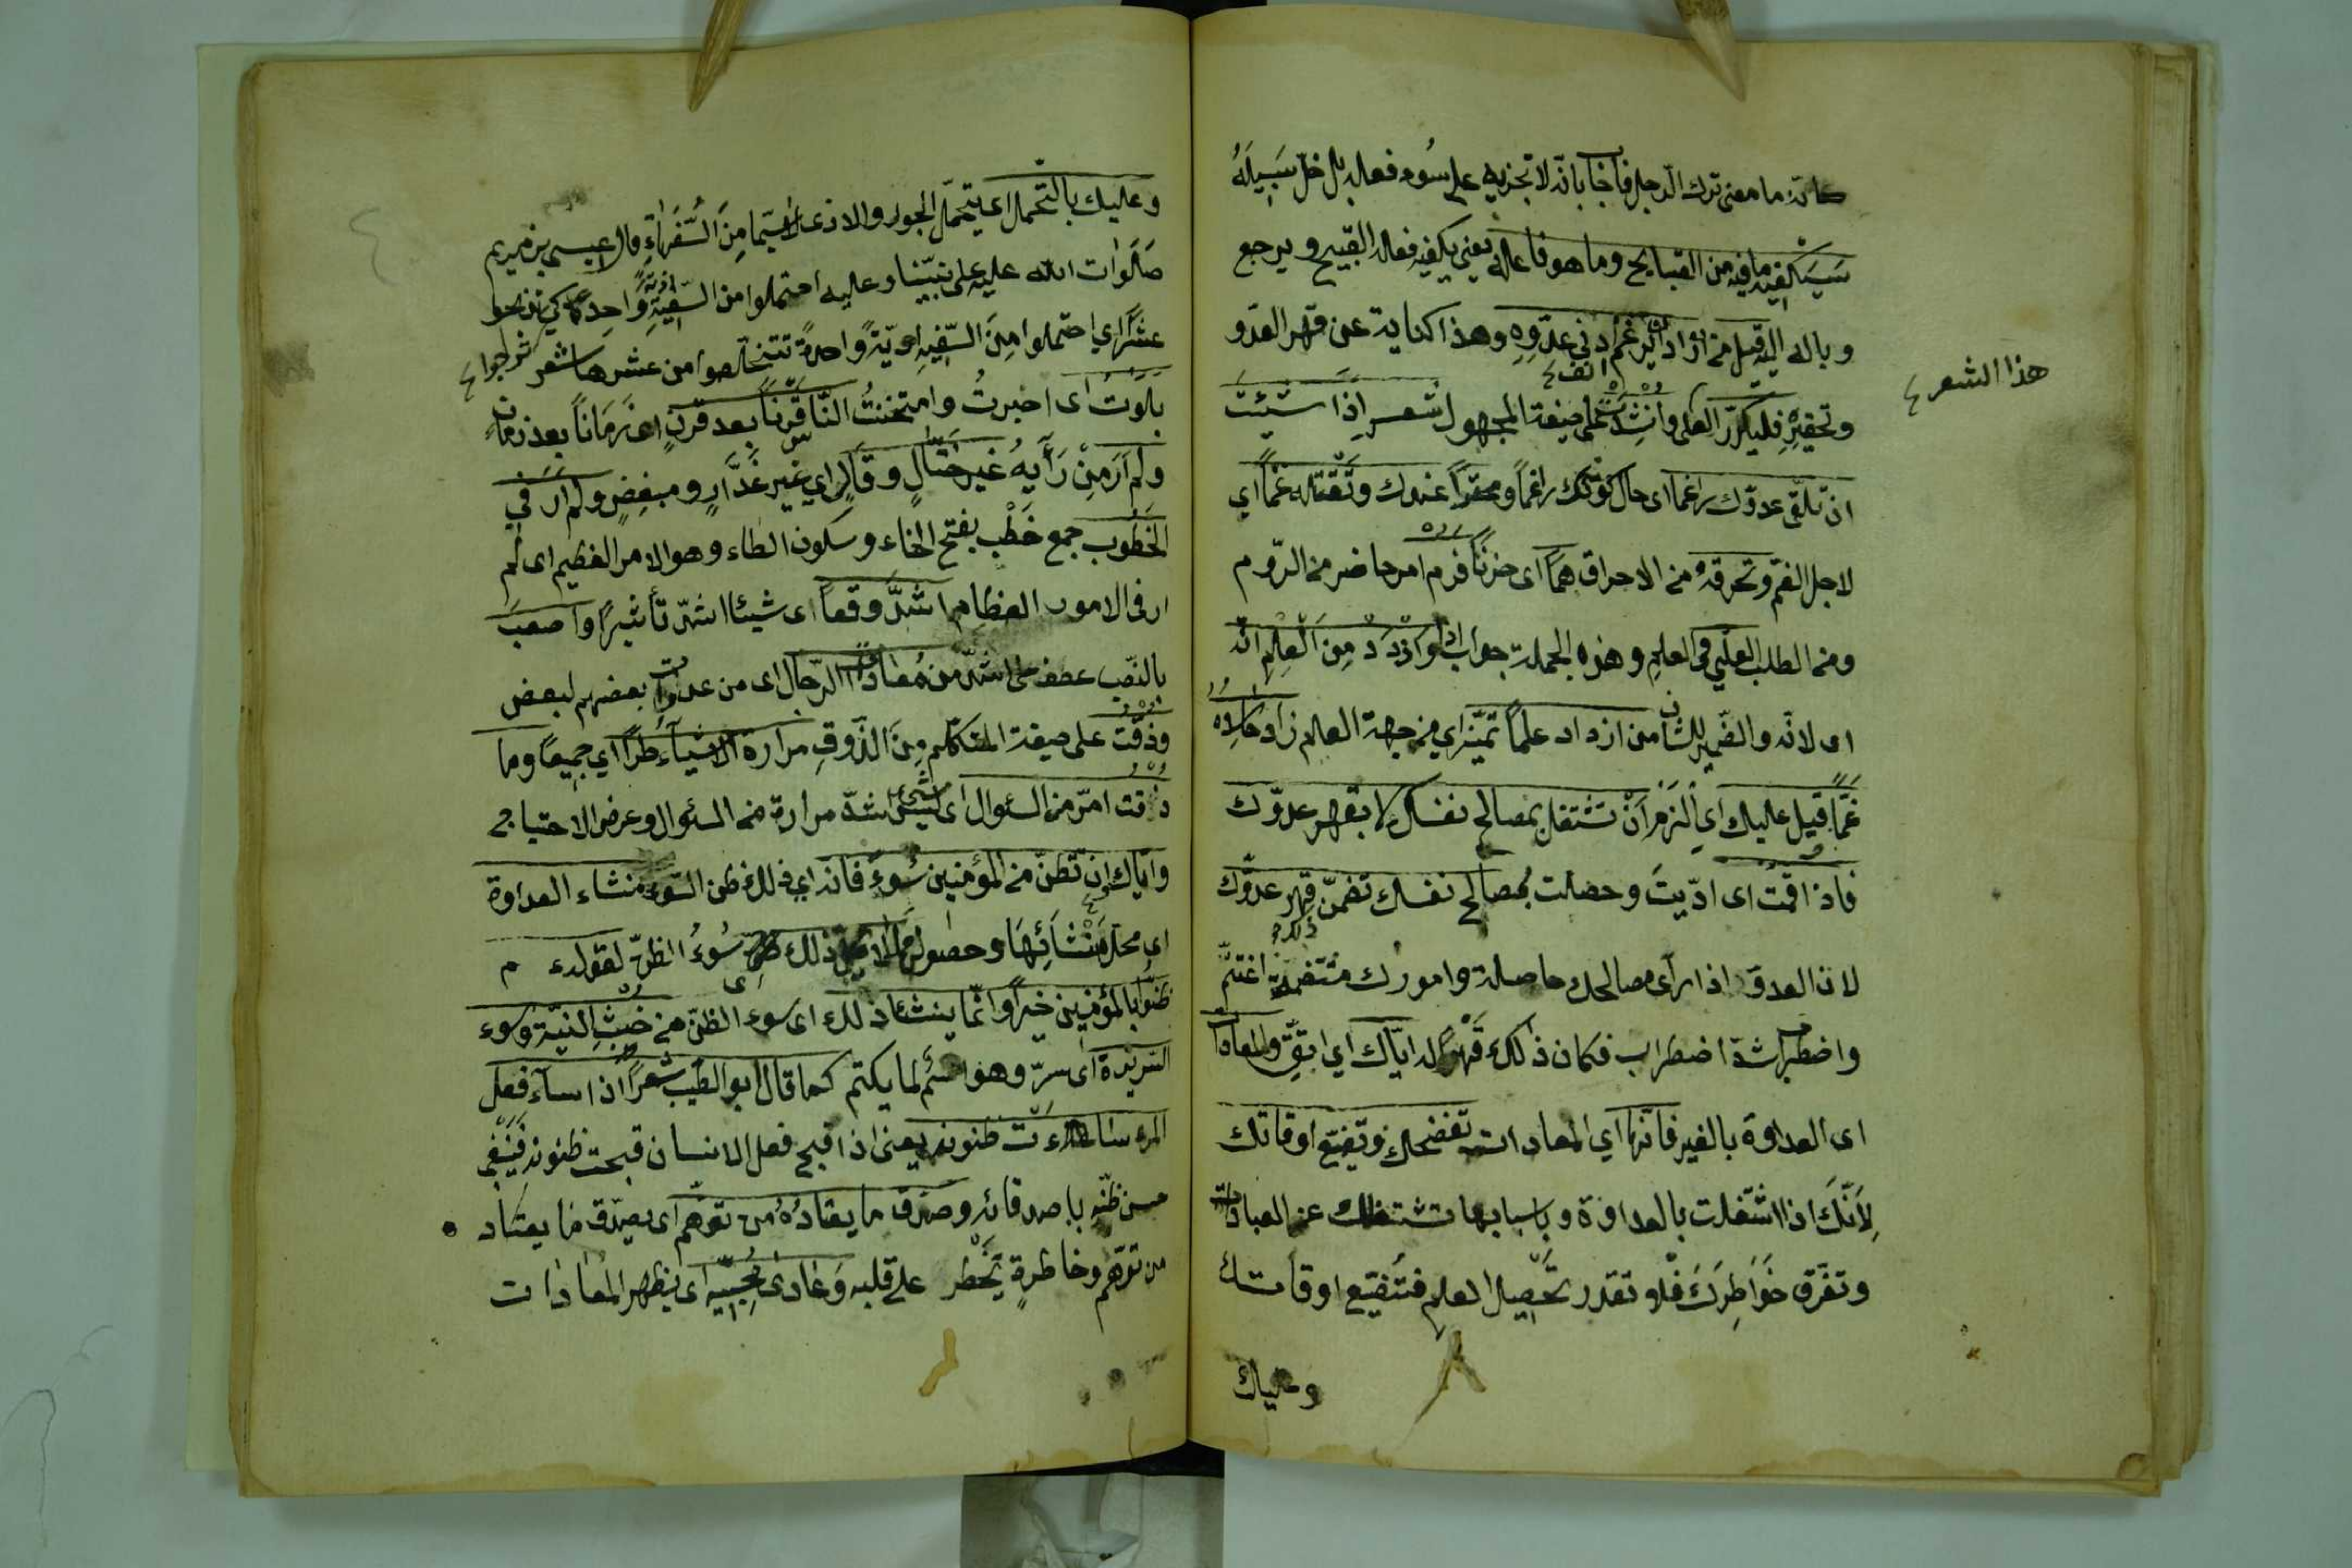 كانه ما معنى ترك الرجل فاجاب بانه لا تجزيه على سُوء فعله بل خلّ سَبِيلَهُ
سَيَكْفِيهِ ما فيه من القبايح وما هو فاعله يعني يكفيه فعله القبيح ويرجع
وباله اليه قيل من اراد ان يرغم انف عدوّه وهذا كناية عن قهر العدو
هذا الشعر
وتحقيره فليكرّر العلم وأُنْشِدْتُ على صيغة المجهول شعر إذا شئتَ
ان تلقى عدوّك راغما اى حال كونك راغماً ومحقراً عدوك وتَقْتله غمّاً اي
لاجل الغم وتحرقه من الاحراق همّاً اى حزناً فرم امر حاضر من الرّوم
ومن الطلب العلى في العلم وهذه الجملة جواب اذا وازْدَدْ مِنَ الْعِلْم انه
اى لانه والضمير للشان من ازداد علماً تميّز اي من جهة العالم زاد حاسده
غمّاً قيل عليك اي اِلْزَمْ اَنْ تشتغل بمصالح نفسك لا بقهر عدوّك
فاذا اقمتَ اى ادّيتَ وحصلت بمصالح نفسك تضمّن ذلك قهر عدوّك
لان العدوّ اذا رآى مصالحك حاصلة وامورك منتظمة اغتمّ
واضطرب اشدّ اضطراب فكان ذلك قهراً له ايّاك اي اتّق والمعاداة
اى العداوة بالغير فانّها اي المعادات تفضحك وتضيّع اوقاتك
لِاَنَّكَ اذا اشتغلت بالعداوة وباسبابها تشتغلك عن العبادات
وتفرّق خَوَاطِرَكَ فلا تقدر تحصيل العلم فتُضيّع اوقاتك
وعليك
وعليك بالتّحمل اى بتحمّل الجور والاذى لا سيّما مِنَ السُّفَهَاءِ قال عيسى بن مريم
صَلَوات الله عليه على نبيّنا وعليه احتملوا من السّفيه واحدةً كي تربحوا
عشراً اي احتملوا مِنَ السّفيه اذيّةً واحدةً تتخلصوا من عشرها شعر
بلوتُ اى اخبرتُ وامتحنتُ النّاس قرناً بعد قرنٍ اى زَمَاناً بعد زمانٍ
ولم اَرَ مِنْ رَأيهُ غير ختّالٍ وقَالٍ اي غير غَدَّارٍ ومبغضٍ ولم ار في
الخُطُوب جمع خَطْب بفتح الخاء وسكون الطاء وهو الامر العظيم اى لم
ار في الامور العظام اشدَّ وقعاً اى شيئا اشدّ تأثيراً واصعبَ
بالنّصب عطف على اشدّ من مُعادات الرّجال اى من عداوت بعضهم لبعض
وذُقْتُ على صيغة المتكلم مِنَ الذَّوق مرارة الاشياء طُرّاً اي جميعا وما
ذُقت امرّ من السئوال اى شيئ اشدّ مرارة من السئوال وعرض الاحتياج
واياك ان تظنّ من المؤمنين سُوءً فانه اي ذلك ظن السّوء منشاء العداوة
اي محل مَنْشَائِهَا وحصولها لا يحلّ ذلك اى سُوءُ الظنّ لقوله م
ظنّوا بالمؤمنين خيراً وانّما ينشاء ذلك اى سوء الظنّ من خبثِ النيّة وسوء
السّريرة اى سرّ وهو اسم لما يكتم كما قال ابو الطّيب شعراً اذا ساء فعل
المرء ساءَت ظنونه يعنى اذا قبح فعل الانسان قبحت ظنونه فَيَنْفى
حسن ظنّه باصدقائه وصدّق ما يعتادُهُ من توهّم اى يصدّق ما يعتاد
من توهّم وخاطرةٍ تَخْطر على قلبه وعادى مُحِبّيه اى يظهر المُعادات